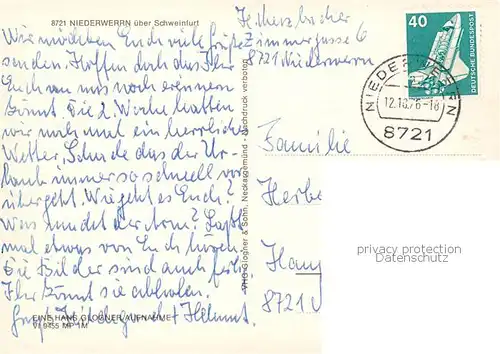 8721 NIEDERWERRN über Schweinfurt
Wir möchten Euch viele Grüße
senden. Hoffen doch das Ihr
Euch an uns noch erinnern
könnt. Die 2. Woche hatten
wir noch mal ein herrliches
Wetter, Schade das der Ur-
laub immer so schnell vor-
übergeht. Wie geht es Euch?
Was macht der Arm? Laßt
mal etwas von Euch hören.
Die Bilder sind auch fertig
Ihr könnt sie abholen.
Gruß Hildegard + Helmut.
EINE HANS GLOGNER AUFNAHME
9455 MP 1M
VHO Glogner & Sohn, Neckargemünd - Nachdruck verboten
Zimmergasse 6
8721 Niederwerrn
40
DEUTSCHE BUNDESPOST
NIEDERWERRN
12.10.76-18
8721
Familie
8721
privacy protection
Datenschutz